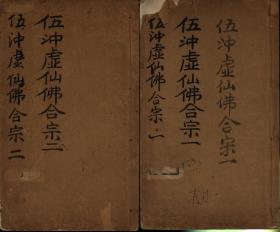 伍沖虛仙佛合宗一
伍沖虛仙佛合宗一
伍沖虛仙佛合宗一
伍沖虛仙佛合宗二
伍沖虛仙佛合宗二